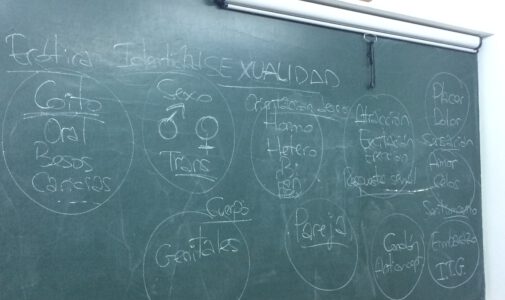 Erótica Identidad SEXUALIDAD
Coito
Oral
Besos
Caricias
Sexo
♂ ♀
Trans
Orientación deseo
Homo
Hetero
Bi
Atracción
Excitación
Respuesta sexual
Placer
Dolor
Sensación
Amor
Celos
Sentimiento
Cuerpo
Genitales
Pareja
Condón
Anticoncept
Embarazo
I.T.G.